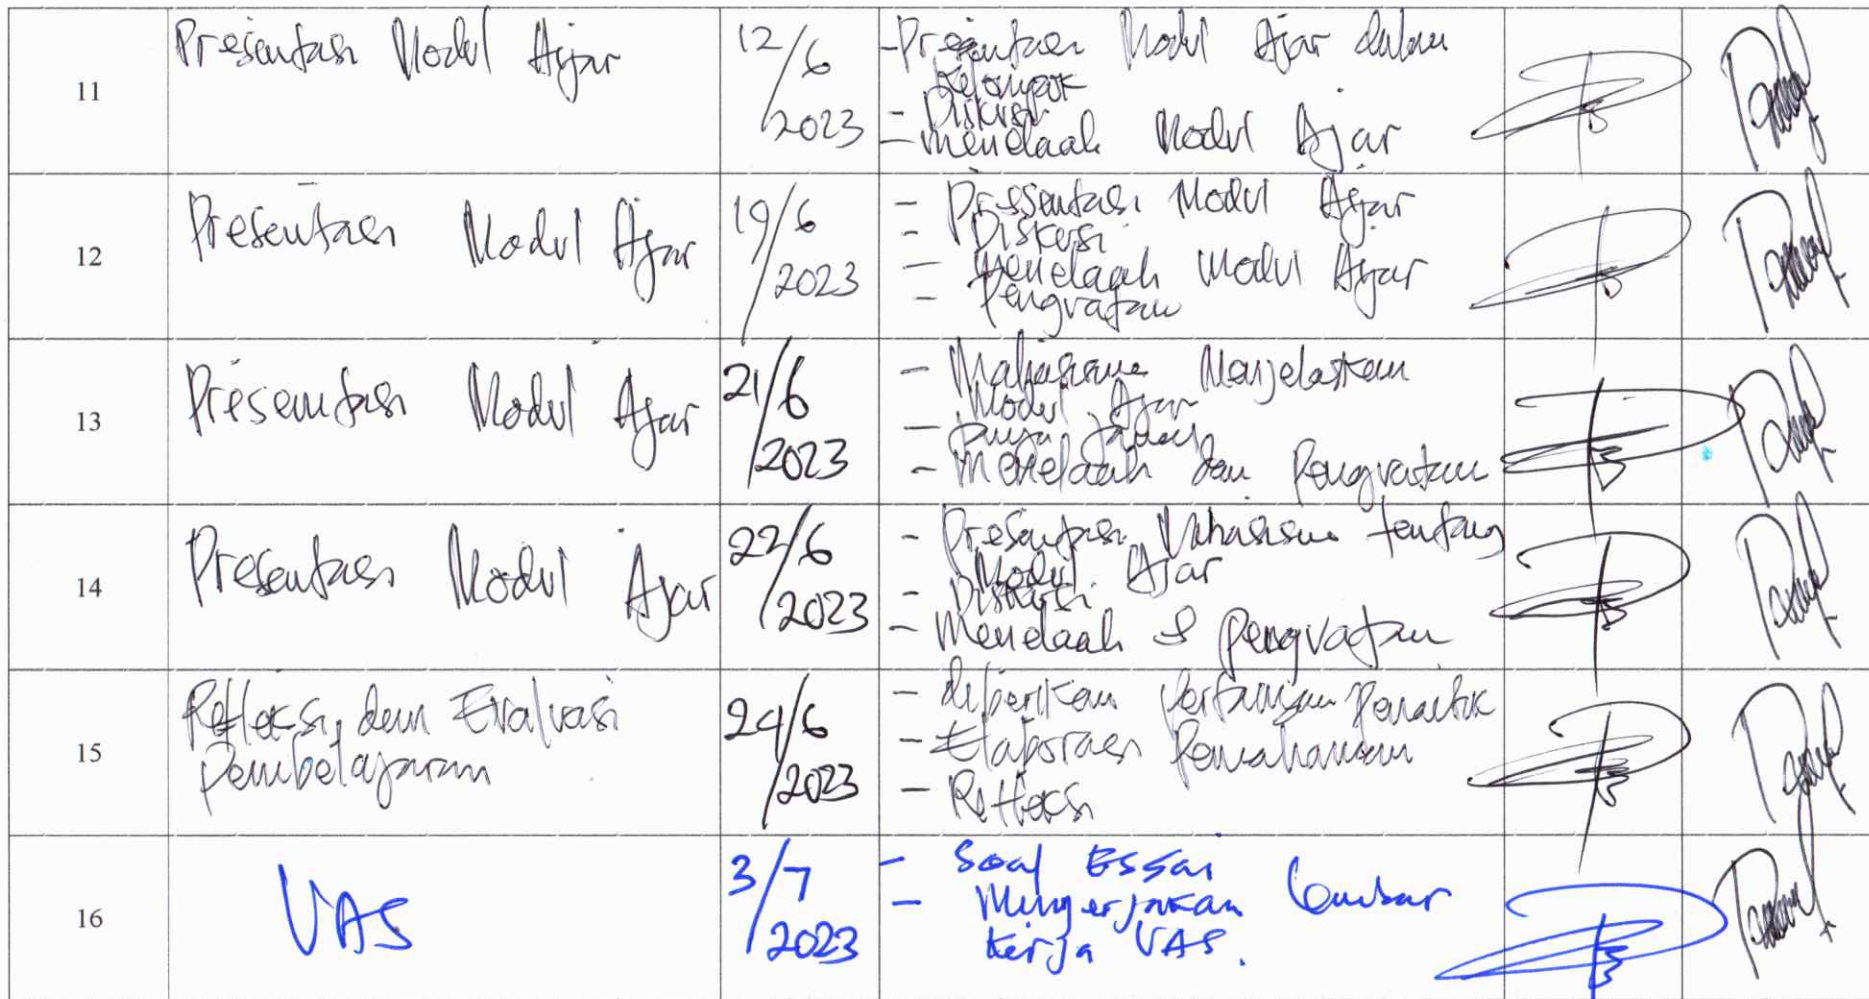 11
Presentasi Modul Ajar
12/6
2023
- Presentasi Modul Ajar dalam
Kelompok
- Diskusi
- Menelaah Modul Ajar
12
Presentasi Modul Ajar
19/6
2023
- Presentasi Modul Ajar
- Diskusi
- Menelaah Modul Ajar
- Penguatan
13
Presentasi Modul Ajar
21/6
2023
- Mahasiswa Menjelaskan
Modul Ajar
- Tanya Jawab
- Menelaah dan Penguatan
14
Presentasi Modul Ajar
22/6
2023
- Presentasi Mahasiswa tentang
Modul Ajar
- Diskusi
- Menelaah & penguatan
15
Refleksi dan Evaluasi
Pembelajaran
24/6
2023
- diberikan pertanyaan Pemantik
- Elaborasi Pemahaman
- Refleksi
16
UAS
3/7
2023
- Soal Essai
- Mengerjakan lembar
kerja UAS.